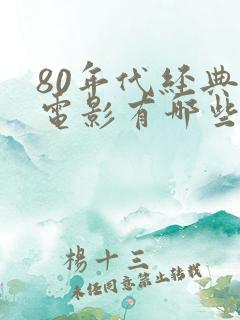 80年代経典
電影有哪些
楊十三
未经同意禁止转载